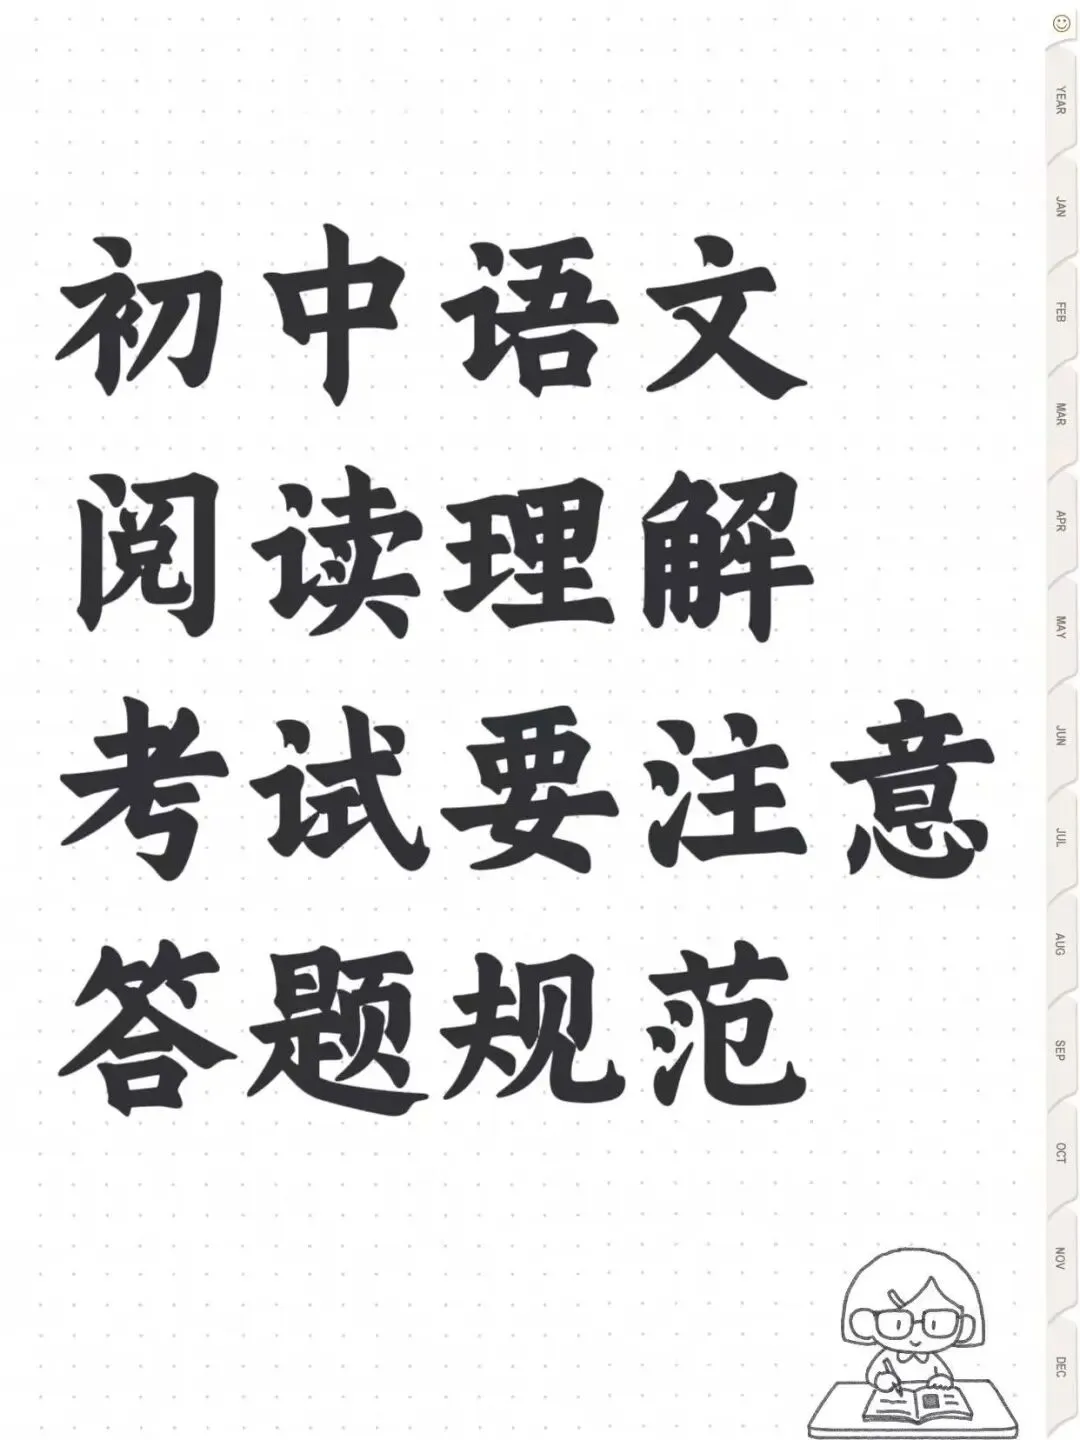 初中语文
阅读理解
考试要注意
答题规范
YEAR
JAN
FEB
MAR
APR
MAY
JUN
JUL
AUG
SEP
OCT
NOV
DEC